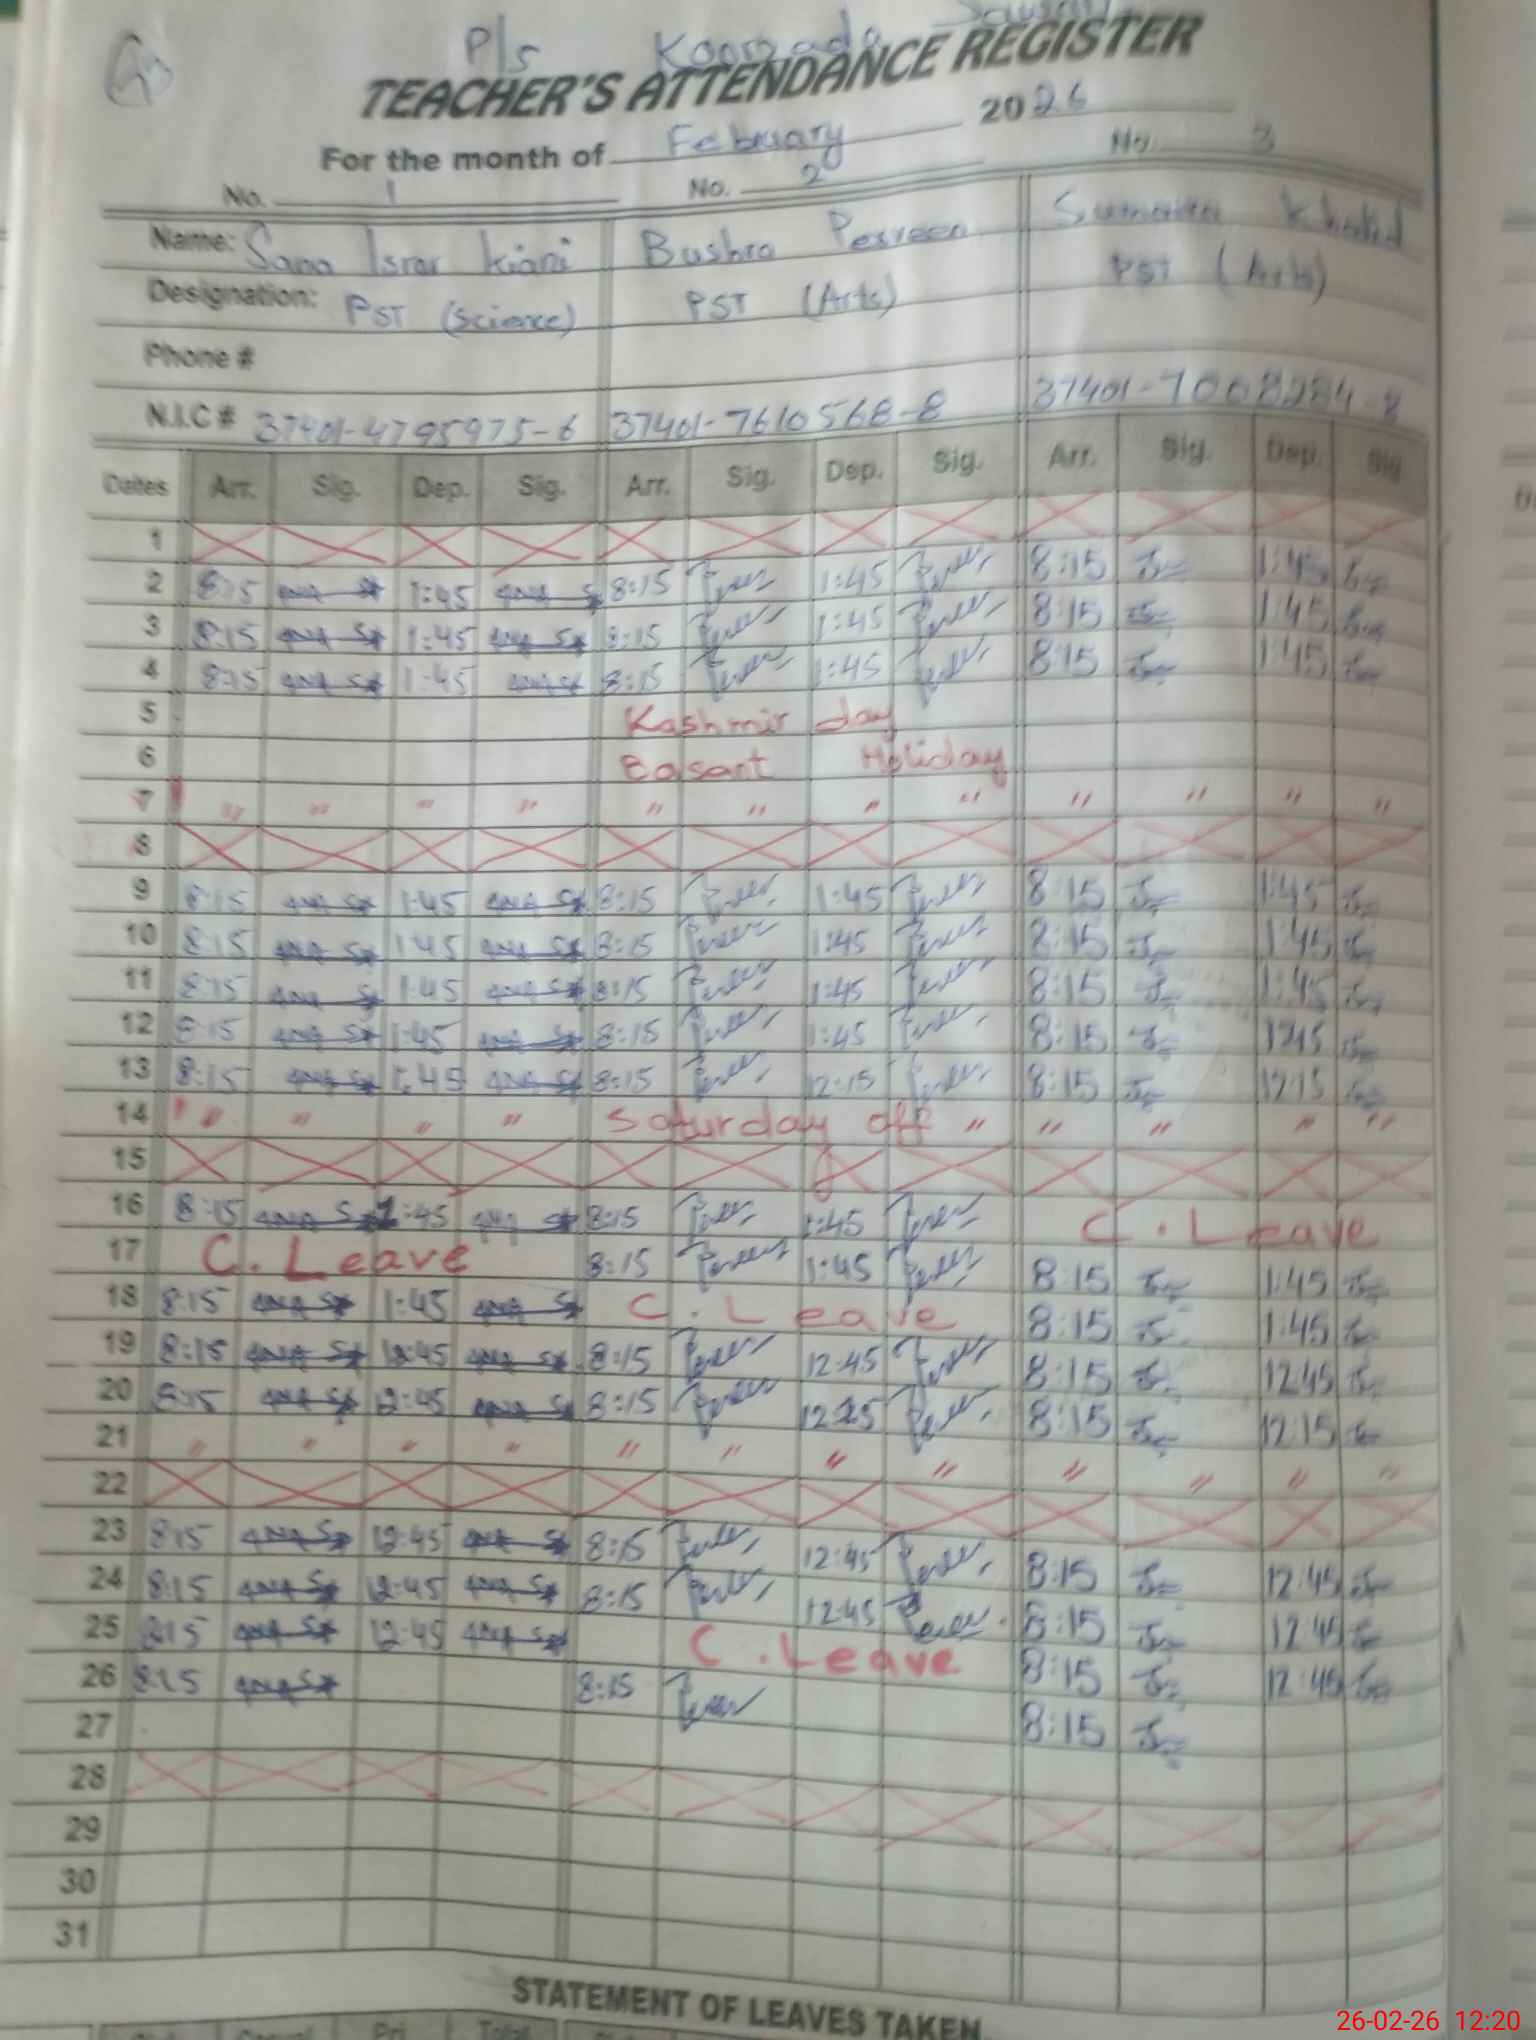 P/S Koorzada
TEACHER'S ATTENDANCE REGISTER
For the month of February 2026
No. 1 No. 2 No. 3
Name: Sana Israr Kiani Bushra Perveen Sumaira Khalid
Designation: PST (Science) PST (Arts) PST (Arts)
Phone #
N.I.C # 37401-4795975-6 37401-7610568-8 37401-7008284-8
Dates Arr. Sig. Dep. Sig. Arr. Sig. Dep. Sig. Arr. Sig. Dep. Sig
1
2 8:15 1:45 8:15 1:45 8:15 1:45
3 8:15 1:45 8:15 1:45 8:15 1:45
4 8:15 1:45 8:15 1:45 8:15 1:45
5 Kashmir day
6 Basant Holiday
7 " " " " " " " " " " " "
8
9 8:15 1:45 8:15 1:45 8:15 1:45
10 8:15 1:45 8:15 1:45 8:15 1:45
11 8:15 1:45 8:15 1:45 8:15 1:45
12 8:15 1:45 8:15 1:45 8:15 1:45
13 8:15 1:45 8:15 12:15 8:15 12:15
14 " " " " Saturday off " " " " "
15
16 8:15 1:45 8:15 1:45 C. Leave
17 C. Leave 8:15 1:45 8:15 1:45
18 8:15 1:45 C. Leave 8:15 1:45
19 8:15 12:45 8:15 12:45 8:15 12:45
20 8:15 12:45 8:15 8:15 12:15
21 " " " " " " " " " " " "
22
23 8:15 12:45 8:15 12:45 8:15 12:45
24 8:15 12:45 8:15 12:45 8:15 12:45
25 8:15 12:45 C. Leave 8:15 12:45
26 8:15 8:15 8:15
27
28
29
30
31
STATEMENT OF LEAVES TAKEN
Total
26-02-26 12:20